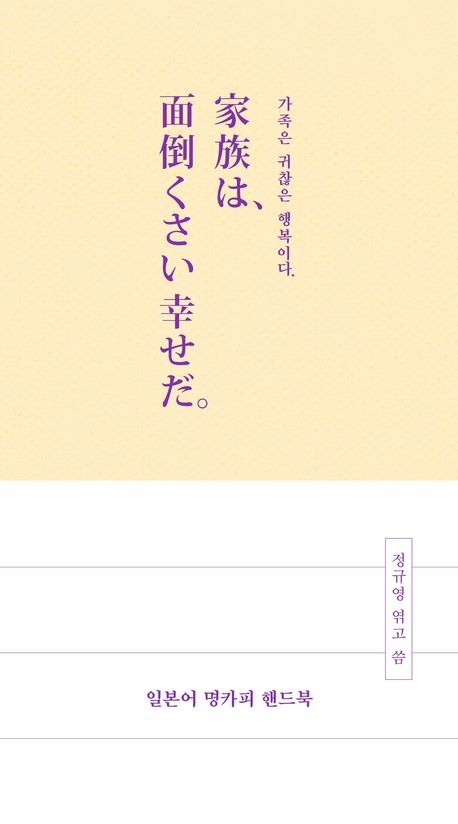 가족은 귀찮은 행복이다.
家族は、
面倒くさい幸せだ。
정규영 엮고 씀
일본어 명카피 핸드북